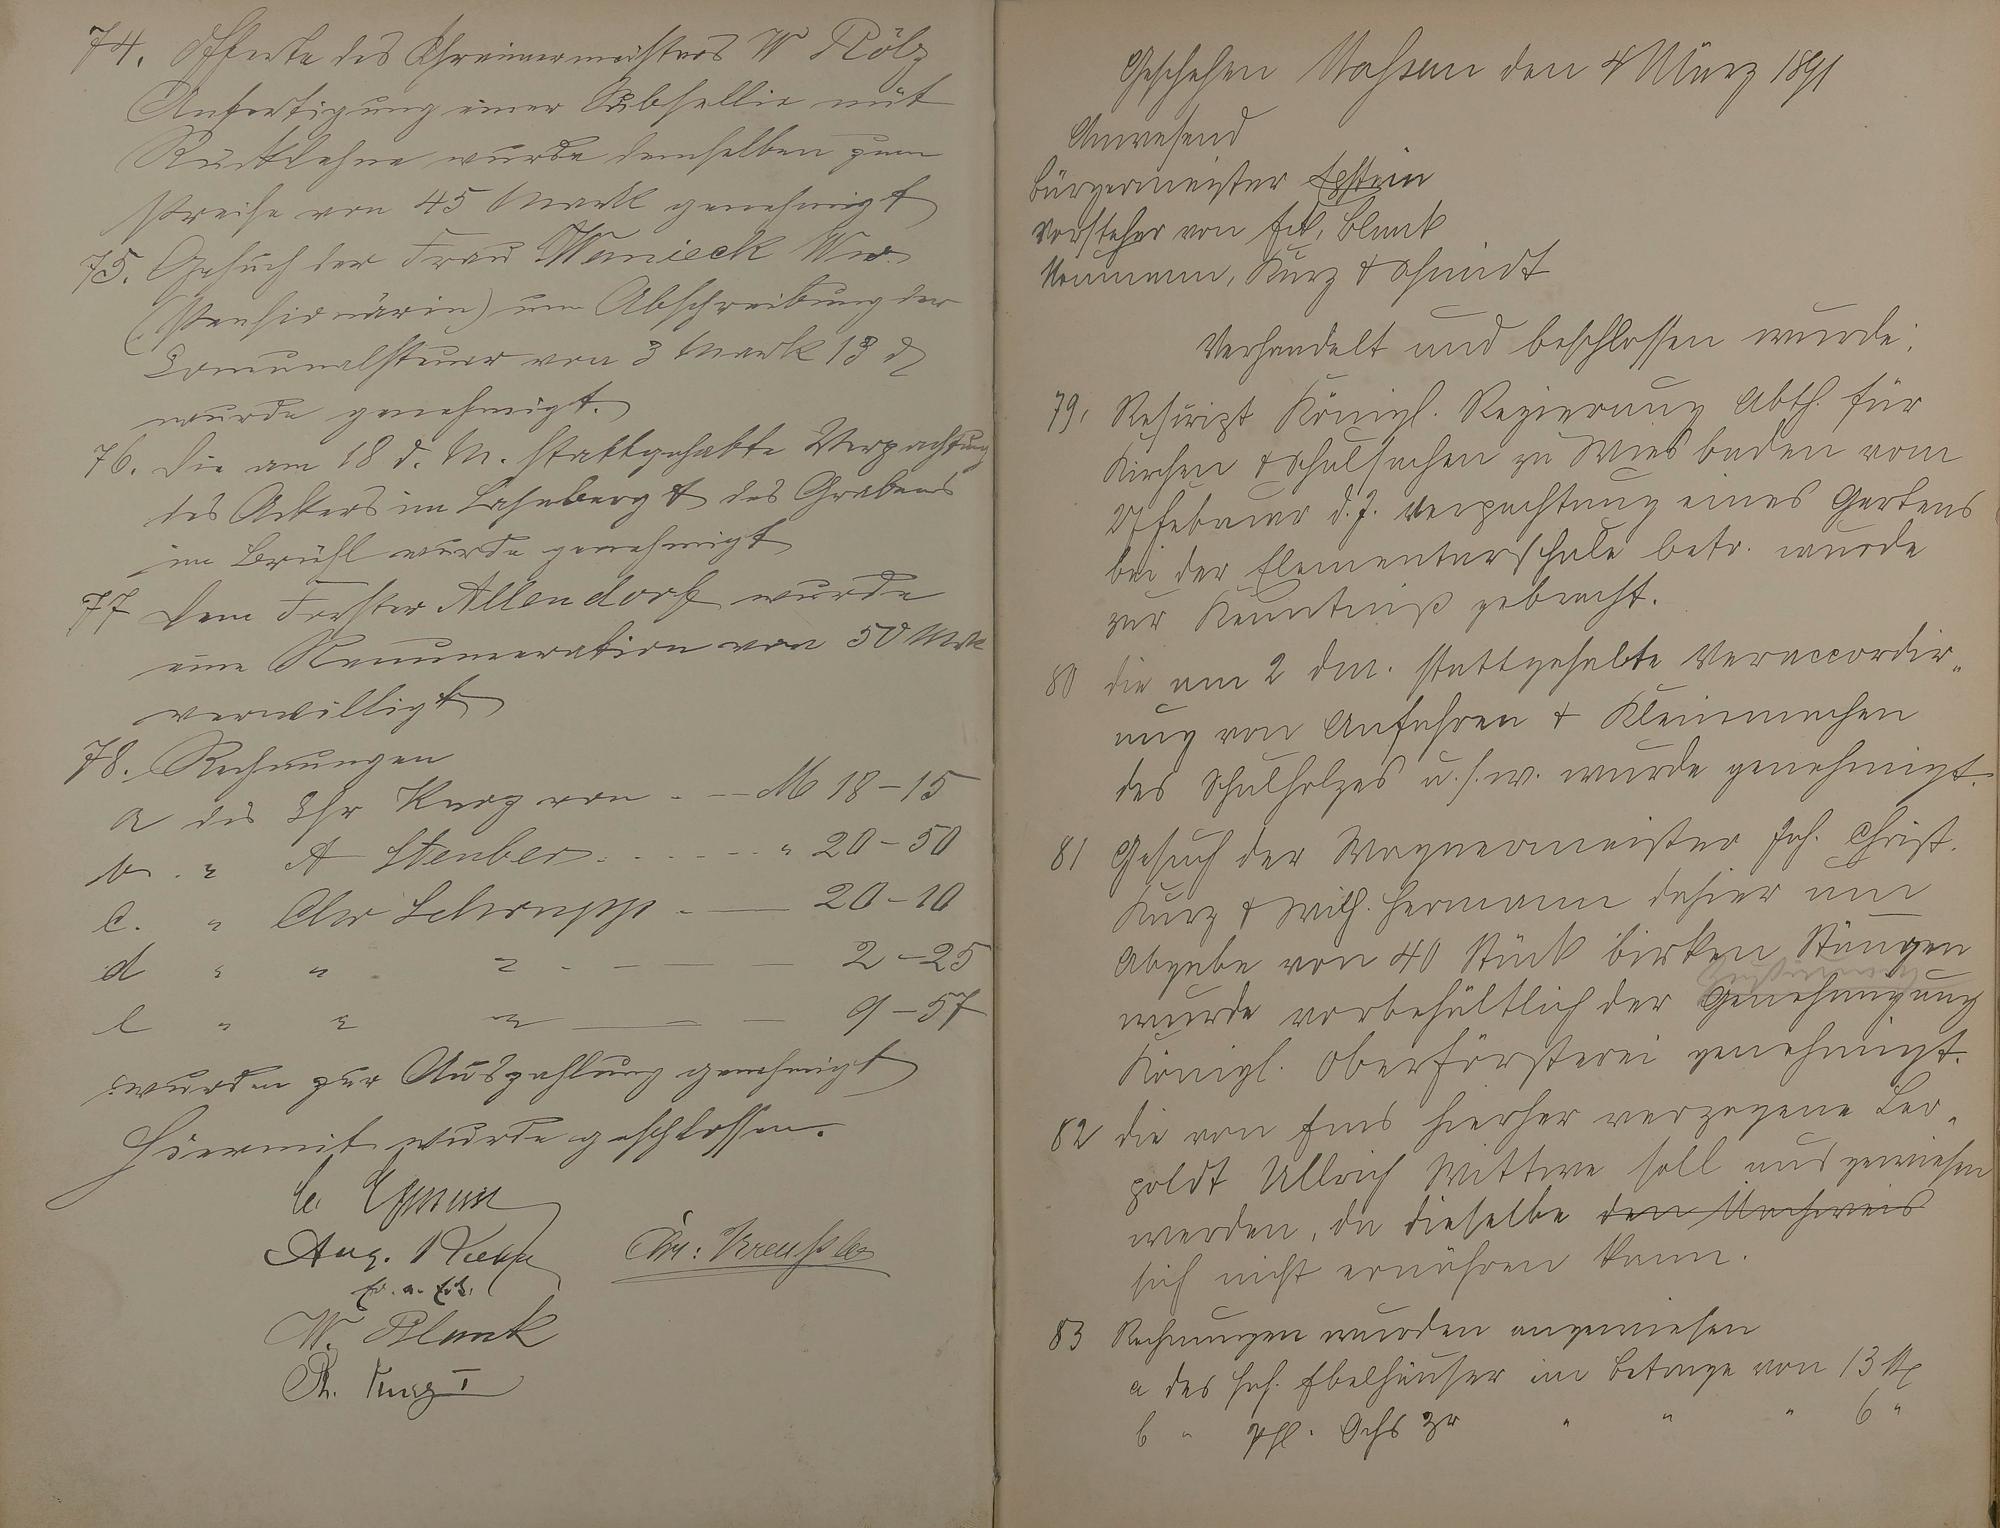 74. Offerte des Schreinermeisters W Pölz
Anfertigung einer Subsellie mit
Rücklehne wurde demselben zum
Preise von 45 Mark genehmigt
75. Gesuch der Frau Wanieck Ww.
(Pensionärin) um Abschreibung der
Comunalsteuer von 3 Mark 13 ₰
wurde genehmigt.
76. Die am 18 d. M. stattgehabte Verpachtung
des Ackers im Lahnberg & des Grabens
im Brühl wurde genehmigt
77 Dem Förster Allendorf wurde
eine Remuneration von 50 Mrk
verwilligt
78. Rechnungen
a des Chr Kurz von . — M 18–15
b . " A Steuber . . . . . " 20–50
c. " Chr Schrupp . — 20–10
d " " " . — — — 2–25
e " " " — — — 9–57
wurden zur Auszahlung genehmigt
Hiermit wurde geschlossen.
Aug.
Chr: Kreußler
W. Blank
Ph. Kurz I
Geschehen Nassau den 4 März 1891
Anwesend
Bürgermeister Epstein
Vorsteher von Eck, Blank
Neumann, Kurz & Schmidt
Verhandelt und beschlossen wurde:
79. Rescript Königl. Regierung Abth. für
Kirchen & Schulsachen zu Wiesbaden vom
27 Februar d. J. Verpachtung eines Gartens
bei der Elementarschule betr. wurde
zur Kenntniß gebracht.
80 die am 2 dM. stattgehabte Veraccordir„
ung von Anfahren & Kleinmachen
des Schulholzes u. s. w. wurde genehmigt.
81 Gesuch der Wagnermeister Joh. Christ.
Kurz & Wilh. Hermann dahier um
Abgabe von 40 Stück birken Stangen
wurde vorbehältlich der Genehmigung
Königl. Oberförsterei genehmigt.
82 die von Ems hierher verzogene Leo„
poldt Ullrich Wittwe soll ausgewiesen
werden, da dieselbe den Nachweis
sich nicht ernähren kann.
83 Rechnungen wurden angewiesen
a des Joh. Ebelhäuser im Betrage von 13 M
b " Phl. Ochs 3r " " " 6 "